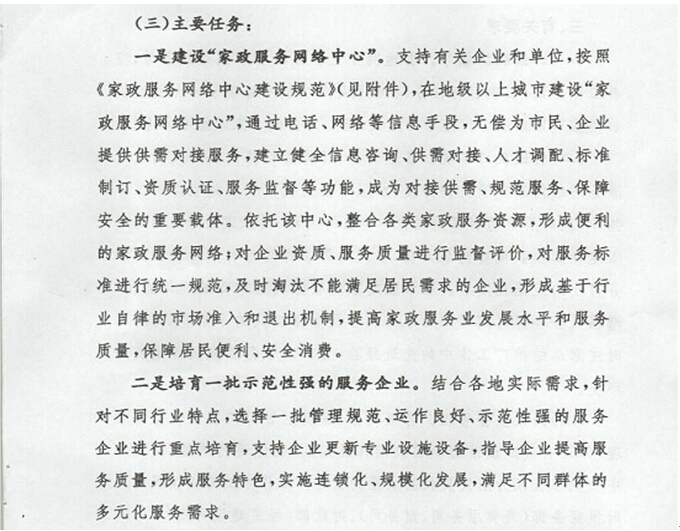 (三)主要任务:
一是建设“家政服务网络中心”。支持有关企业和单位,按照
《家政服务网络中心建设规范》(见附件),在地级以上城市建设“家
政服务网络中心”,通过电话、网络等信息手段,无偿为市民、企业
提供供需对接服务,建立健全信息咨询、供需对接、人才调配、标准
制订、资质认证、服务监督等功能,成为对接供需、规范服务、保障
安全的重要载体。依托该中心,整合各类家政服务资源,形成便利
的家政服务网络;对企业资质、服务质量进行监督评价,对服务标
准进行统一规范,及时淘汰不能满足居民需求的企业,形成基于行
业自律的市场准入和退出机制,提高家政服务业发展水平和服务
质量,保障居民便利、安全消费。
二是培育一批示范性强的服务企业。结合各地实际需求,针
对不同行业特点,选择一批管理规范、运作良好、示范性强的服务
企业进行重点培育,支持企业更新专业设施设备,指导企业提高服
务质量,形成服务特色,实施连锁化、规模化发展,满足不同群体的
多元化服务需求。